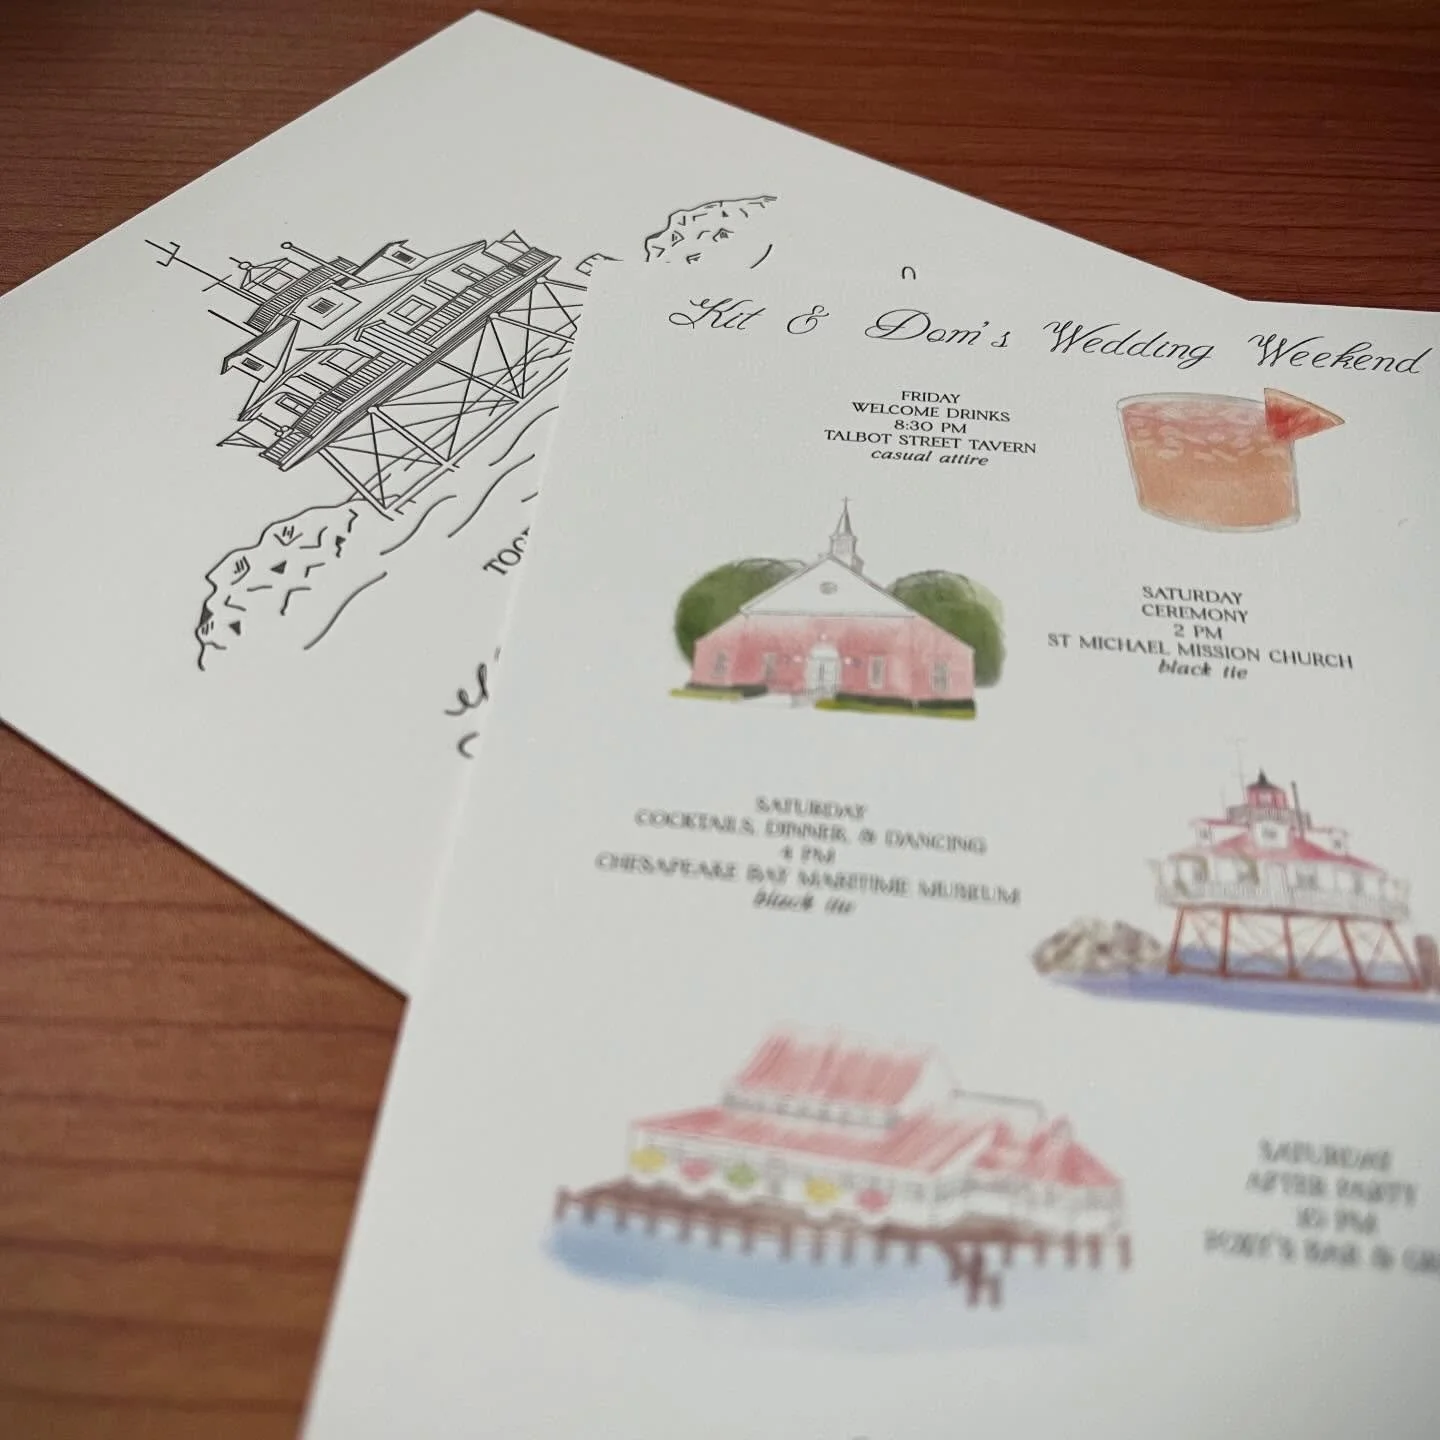 Kit & Dom's Wedding Weekend
FRIDAY
WELCOME DRINKS
8:30 PM
TALBOT STREET TAVERN
casual attire
SATURDAY
CEREMONY
2 PM
ST MICHAEL MISSION CHURCH
black tie
SATURDAY
COCKTAILS, DINNER, & DANCING
4 PM
CHESAPEAKE BAY MARITIME MUSEUM
black tie
SATURDAY
AFTER PARTY
10 PM
BAR &